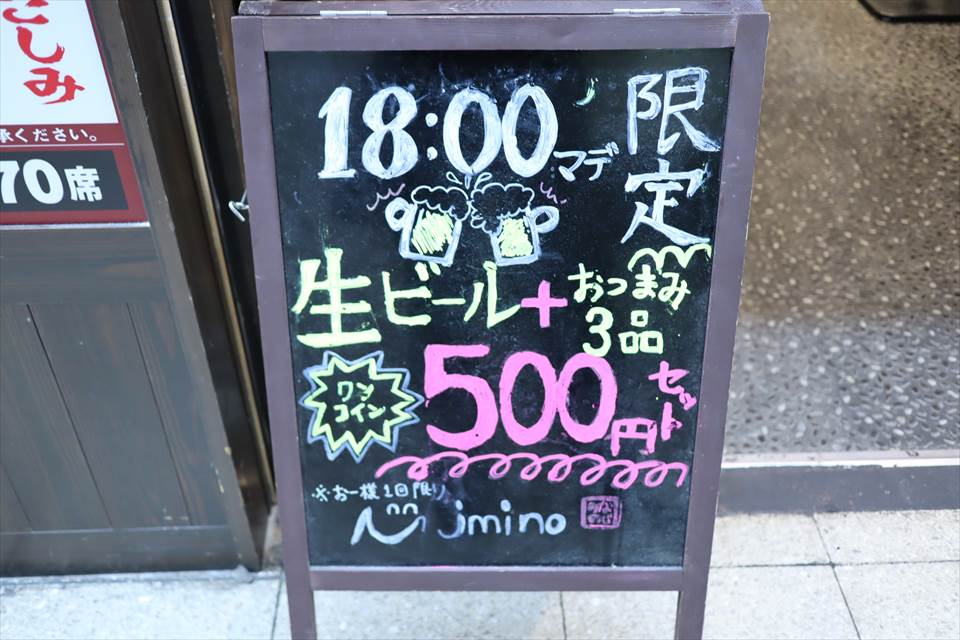 こしみ
承ください。
70席
18:00マデ
限定
生ビール+おつまみ
3品
ワン
コイン
500円
セット
※お一様1回限り